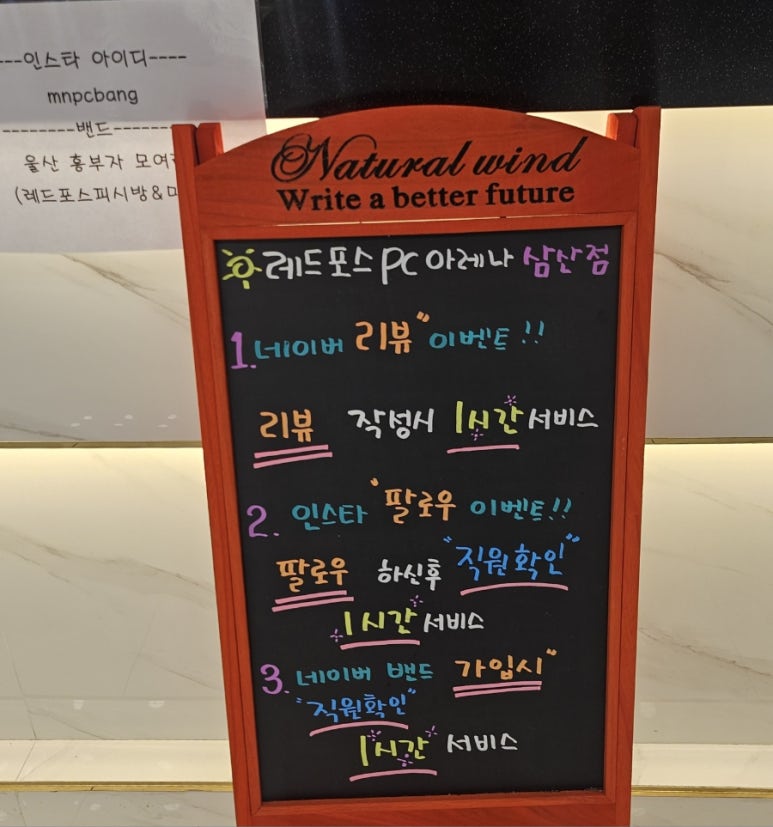 ---인스타 아이디----
mnpcbang
--------밴드-------
울산 흥부자 모여
(레드포스피시방&
Natural wind
Write a better future
레드포스 PC 아레나 삼산점
1. 네이버 리뷰" 이벤트!!
리뷰 작성시 1시간 서비스
2. 인스타 "팔로우 이벤트!!
팔로우 하신후 "직원확인"
1시간 서비스
3. 네이버 밴드 가입시"
"직원확인"
1시간 서비스